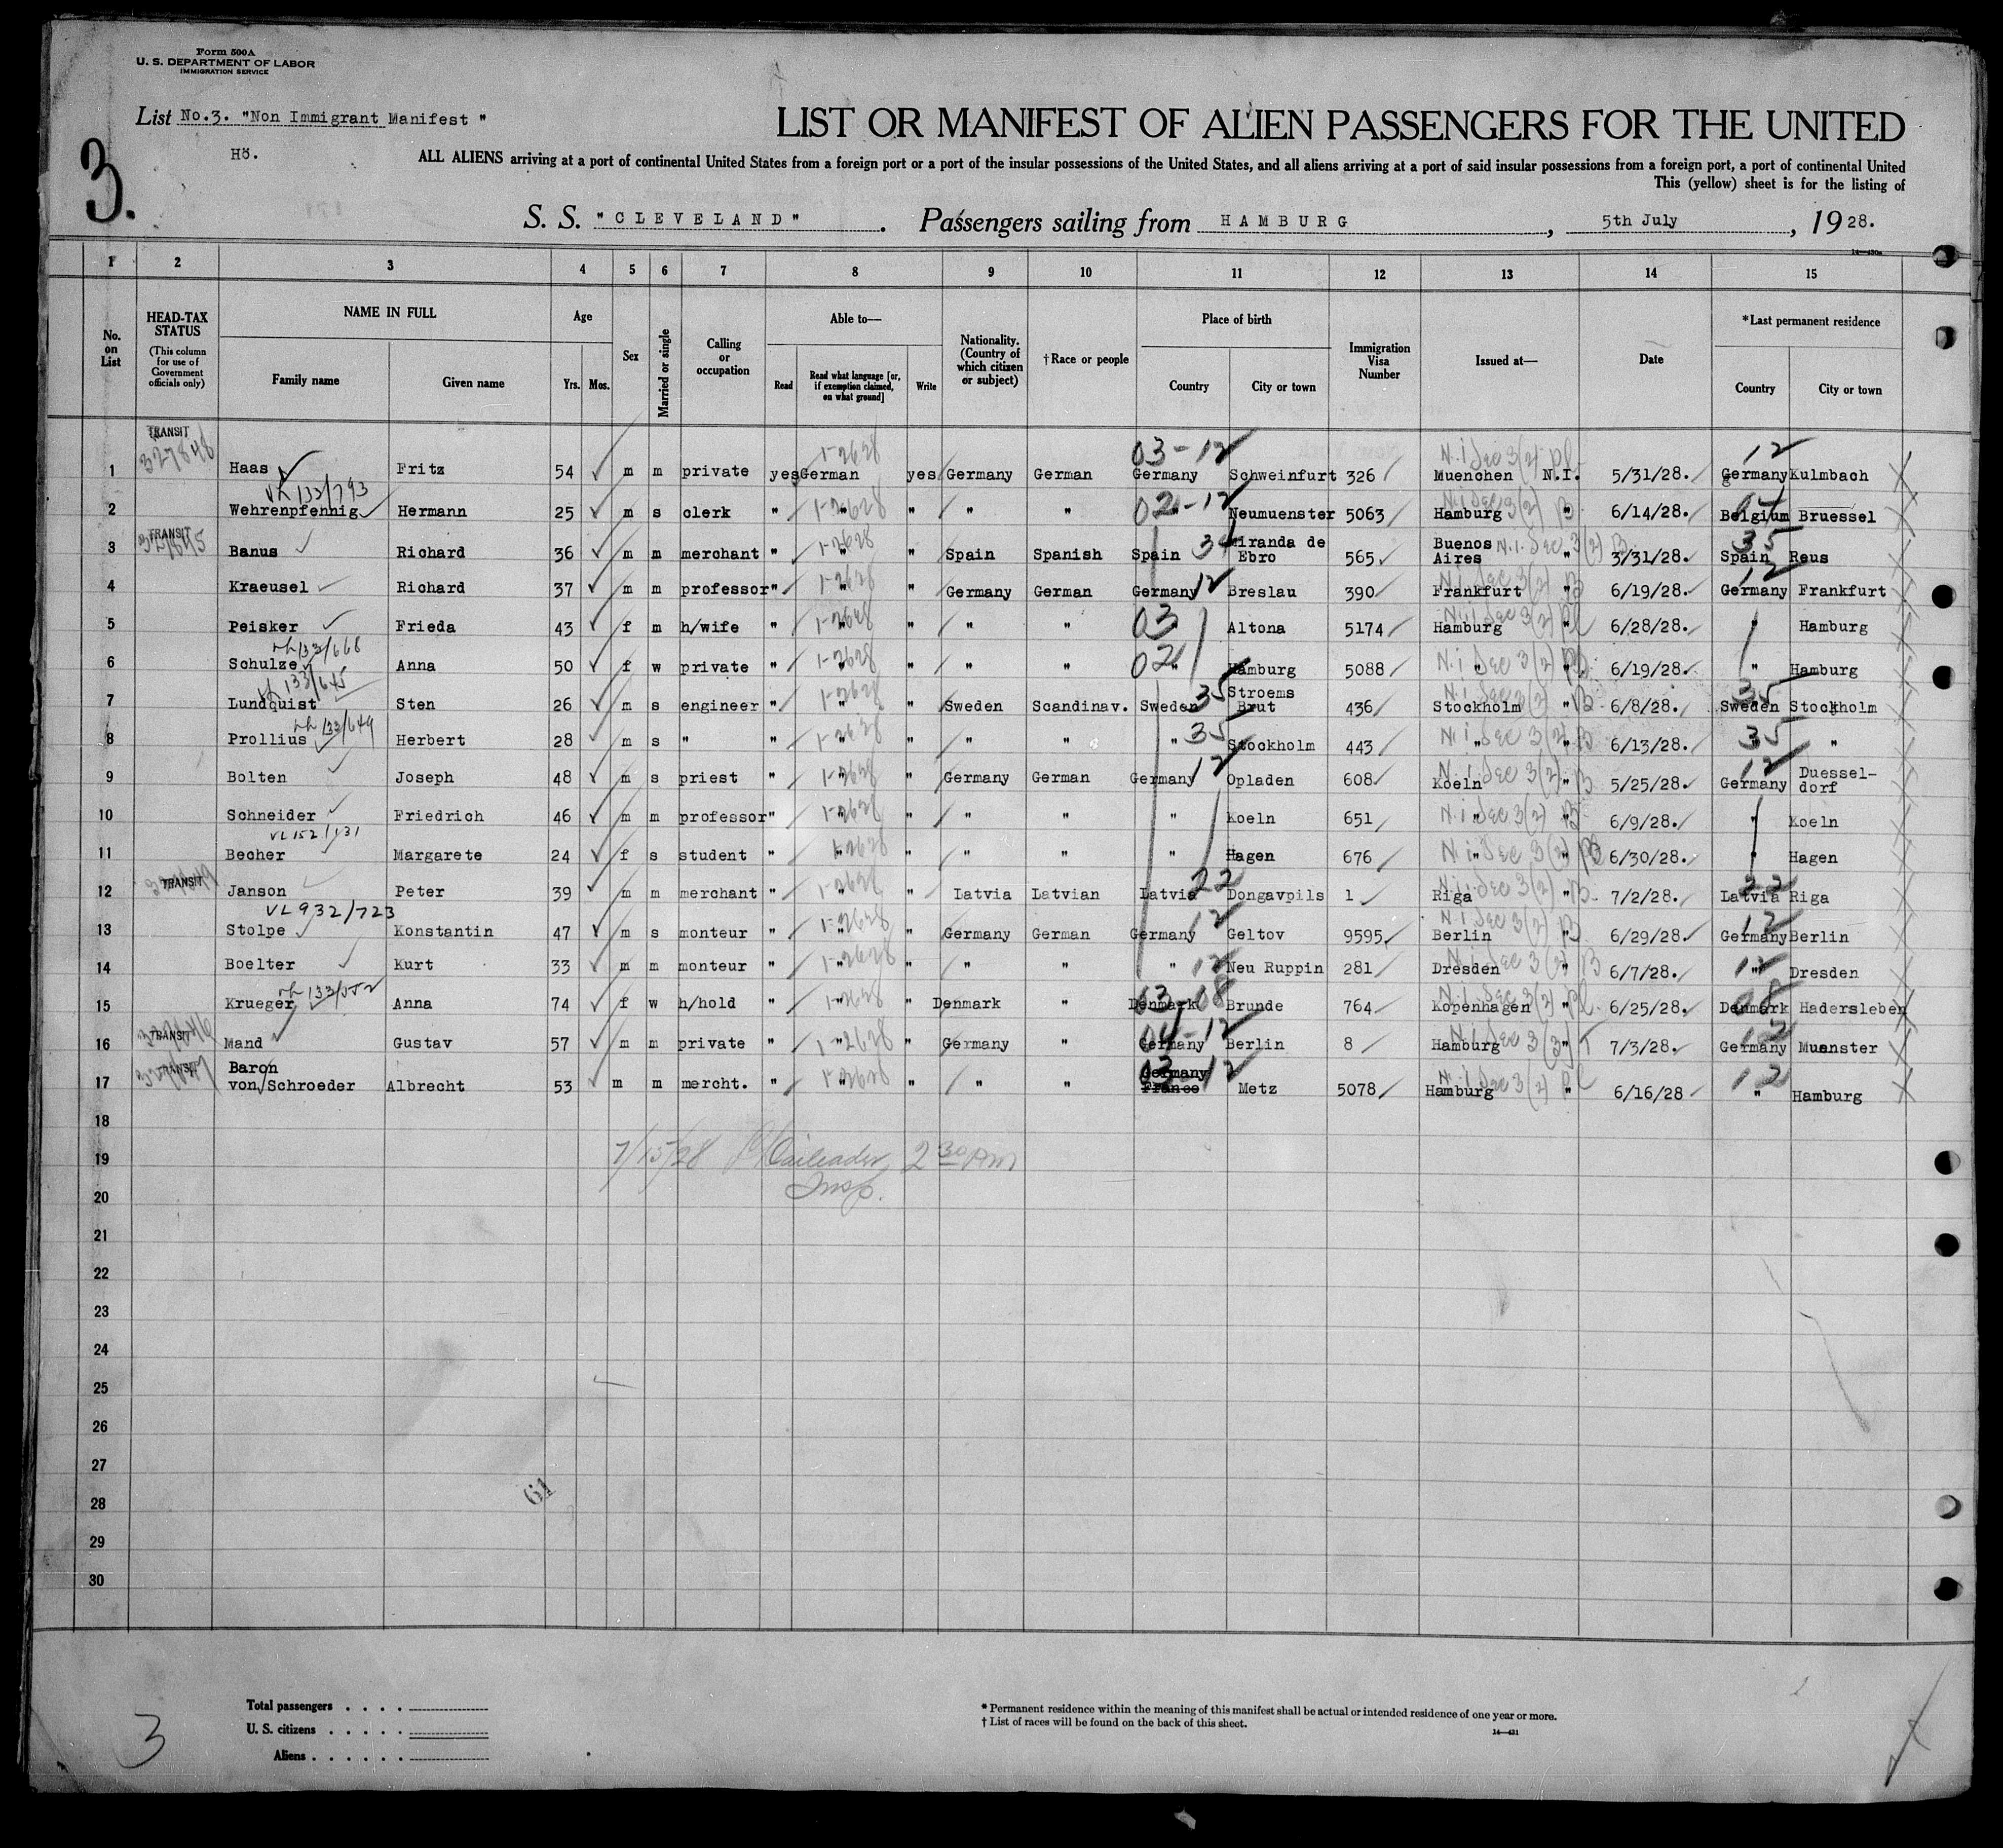 Form 500A
U. S. DEPARTMENT OF LABOR
IMMIGRATION SERVICE
List No.3. "Non Immigrant Manifest "
Hö.
3.
LIST OR MANIFEST OF ALIEN PASSENGERS FOR THE UNITED
ALL ALIENS arriving at a port of continental United States from a foreign port or a port of the insular possessions of the United States, and all aliens arriving at a port of said insular possessions from a foreign port, a port of continental United
This (yellow) sheet is for the listing of
S. S. "CLEVELAND". Passengers sailing from HAMBURG, 5th July, 1928.
14—430a
1 2 3 4 5 6 7 8 9 10 11 12 13 14 15
No. on List
HEAD-TAX STATUS
(This column for use of Government officials only)
NAME IN FULL
Family name Given name
Age
Yrs. Mos.
Sex
Married or single
Calling or occupation
Able to—
Read
Read what language [or, if exemption claimed, on what ground]
Write
Nationality. (Country of which citizen or subject)
†Race or people
Place of birth
Country City or town
Immigration Visa Number
Issued at—
Date
*Last permanent residence
Country City or town
1 TRANSIT 327848 Haas Fritz 54 m m private yes German yes Germany German 03-12 Germany Schweinfurt 326 Muenchen N.I. 5/31/28. 12 Germany Kulmbach
133/793
2 Wehrenpfennig Hermann 25 m s clerk " " " " " 02-12 " Neumuenster 5063 Hamburg " 6/14/28. Belgium Bruessel
3 TRANSIT Banus Richard 36 m m merchant " " " Spain Spanish Spain Miranda de Ebro 565 Buenos Aires " 3/31/28. 35 Spain Reus
4 Kraeusel Richard 37 m m professor " " " Germany German Germany 12 Breslau 390 Frankfurt " 6/19/28. 12 Germany Frankfurt
5 Peisker Frieda 43 f m h/wife " " " " " 03 " Altona 5174 Hamburg " 6/28/28. " Hamburg
133/668
6 Schulze Anna 50 f w private " " " " " 02 " Hamburg 5088 " " 6/19/28. " Hamburg
133/645
7 Lundquist Sten 26 m s engineer " " " Sweden Scandinav. Sweden 35 Stroems Brut 436 Stockholm " 6/8/28. 35 Sweden Stockholm
133/649
8 Prollius Herbert 28 m s " " " " " " " 35 Stockholm 443 " " 6/13/28. 35 " "
9 Bolten Joseph 48 m s priest " " " Germany German Germany 12 Opladen 608 Koeln " 5/25/28. 12 Germany Duessel-dorf
10 Schneider Friedrich 46 m m professor " " " " " " Koeln 651 " " 6/9/28. " Koeln
VL152/131
11 Becher Margarete 24 f s student " " " " " " Hagen 676 " " 6/30/28. " Hagen
12 TRANSIT Janson Peter 39 m m merchant " " " Latvia Latvian Latvia 22 Dongavpils 1 Riga " 7/2/28. 22 Latvia Riga
VL932/723
13 Stolpe Konstantin 47 m s monteur " " " Germany German Germany 12 Geltov 9595 Berlin " 6/29/28. 12 Germany Berlin
14 Boelter Kurt 33 m m monteur " " " " " " 12 Neu Ruppin 281 Dresden " 6/7/28. 12 " Dresden
133/552
15 Krueger Anna 74 f w h/hold " " " Denmark " 03-08 Denmark Brunde 764 Kopenhagen " 6/25/28. 08 Denmark Hadersleben
16 TRANSIT Mand Gustav 57 m m private " " " Germany " Germany Berlin 8 Hamburg " 7/3/28. 12 Germany Muenster
17 TRANSIT Baron von Schroeder Albrecht 53 m m mercht. " " " " " Germany France 03-12 Metz 5078 Hamburg " 6/16/28 12 " Hamburg
18
19 7/15/28 2 30 PM
Insp.
20
21
22
23
24
25
26
27
61
28
29
30
Total passengers . . . .
U. S. citizens . . . . .
Aliens . . . . . .
* Permanent residence within the meaning of this manifest shall be actual or intended residence of one year or more.
† List of races will be found on the back of this sheet.
14—421
3